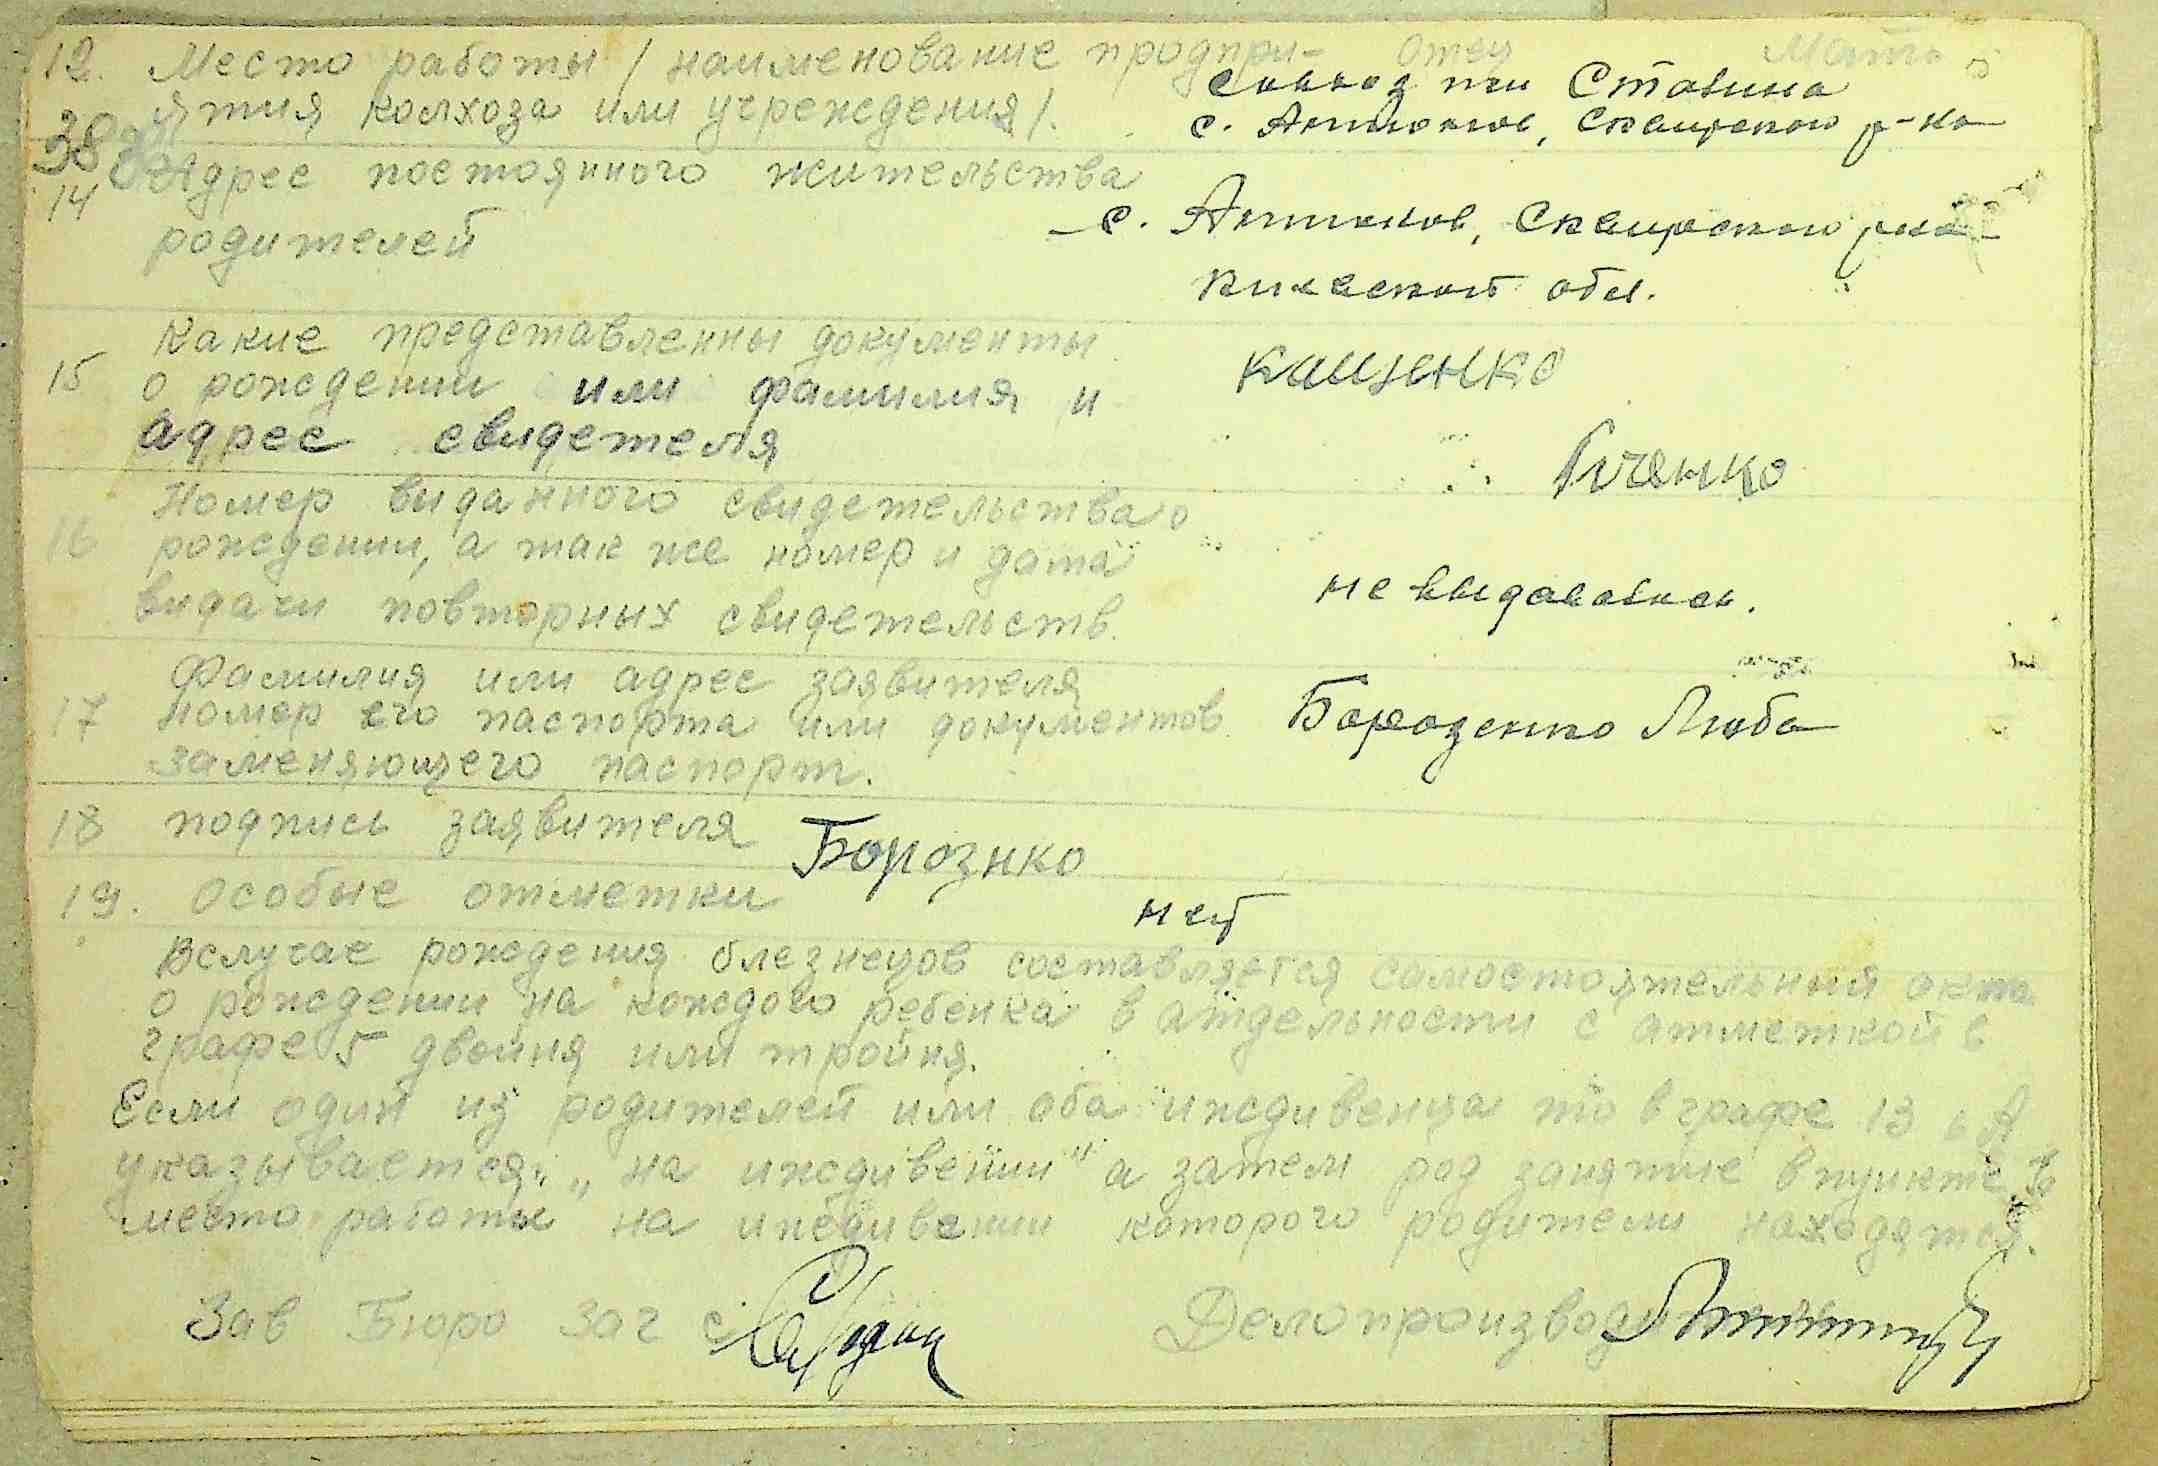 12. Место работы / наименование предпри- отец Мать
ятия колхоза или учреждения/.
совхоз им Сталина
с. Антонов, Сквирского р-на
38
14 Адрес постоянного жительства
родителей
с. Антонов, Сквирского р-на
Киевской обл.
Какие представленны документы
15 о рождении или фамилия и
адрес свидетеля
Кащенко
Номер виданного свидетельства о
16 рождении, а так же номер и дата
видачи повторных свидетельств.
не выдавались.
Фамилия или адрес заявителя
17 номер его паспорта или документов
заменяющего паспорт.
Бороденко Люба
18 подпись заявителя Борознко
19. Особые отметки нет
Вслучае рождения близнецов составляется самостоятельный акта
о рождении на кождого ребенка в отдельности с отметкой в
графе 5 двойня или тройня.
Если один из родителей или оба иждивенца то в графе 13 б А
указывается „ на иждивении" а затем род занятие в пункте Б
место работы на иждивении которого родители находятся.
Зав Бюро Заг с Делопроизводи